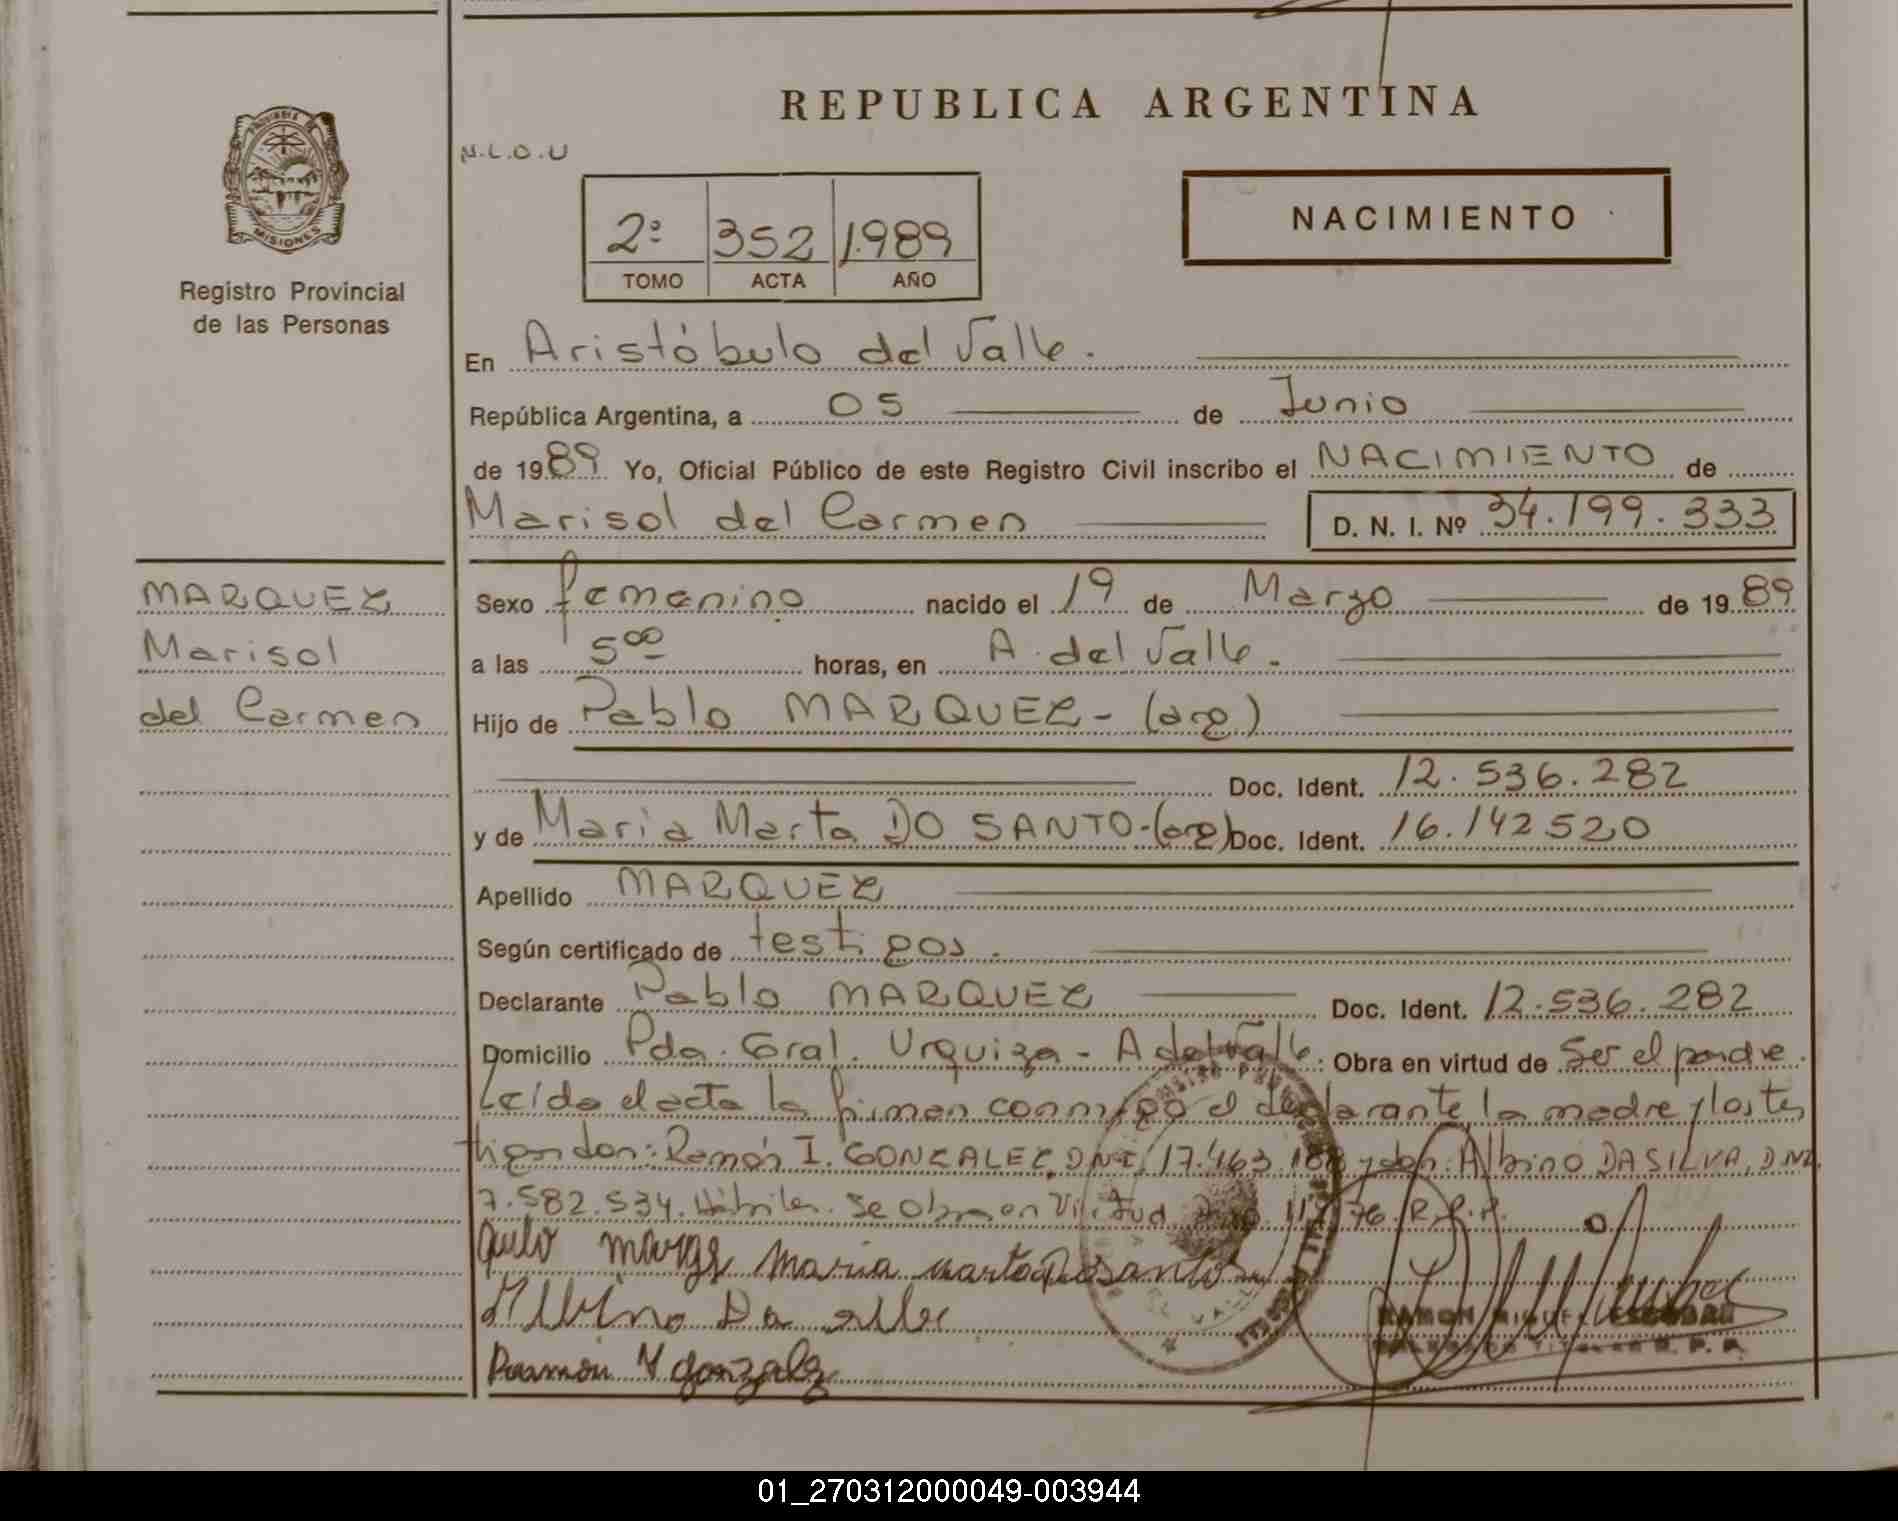 REPUBLICA ARGENTINA
PROVINCIA DE
MISIONES
Registro Provincial
de las Personas
N.L.O.U
2º 352 1.989
TOMO ACTA AÑO
NACIMIENTO
En Aristóbulo del Valle.
República Argentina, a 05 de Junio
de 1989 Yo, Oficial Público de este Registro Civil inscribo el NACIMIENTO de
Marisol del Carmen D. N. I. Nº 34.199.333
MARQUEZ
Marisol
del Carmen
Sexo femenino nacido el 19 de Marzo de 1989
a las 5 00 horas, en A. del Valle.
Hijo de Pablo MARQUEZ - (arg)
Doc. Ident. 12.536.282
y de Maria Marta DO SANTO - (arg) Doc. Ident. 16.142520
Apellido MARQUEZ
Según certificado de testigos.
Declarante Pablo MARQUEZ Doc. Ident. 12.536.282
Domicilio Pda. Gral. Urquiza - A del Valle. Obra en virtud de Ser el padre.
Leída el acta la firman conmigo el declarante la madre y los tes
tigos don: Ramón I. GONZALEZ, DNI. 17.463.188 y don: Albino DA SILVA, DNI.
7.582.534. Hábiles. Se obra en Virtud 76. R.P.P.
maria marta Do santo
Albino Da
Ramon Y gonzalez
RAMON MIGUEL ESCOBAR
DELEGADO TITULAR R. P. P.
01_270312000049-003944